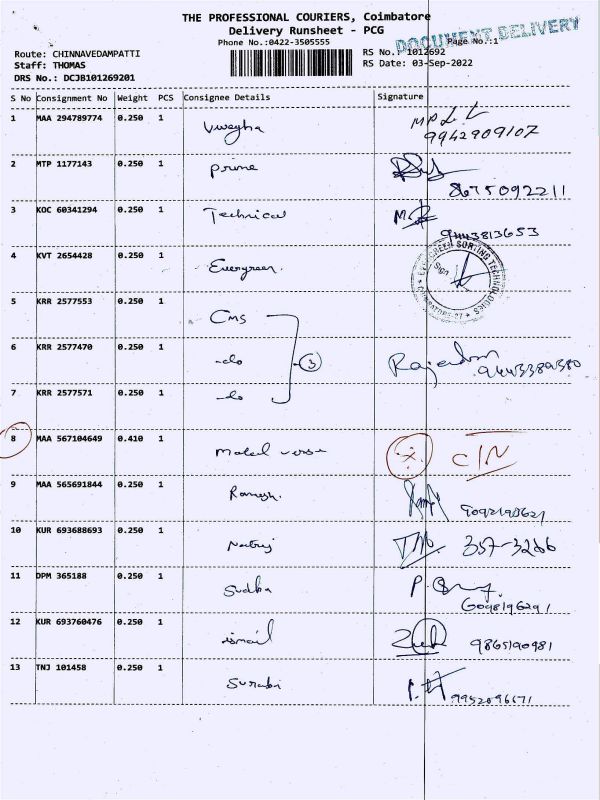 THE PROFESSIONAL COURIERS, Coimbatore
Delivery Runsheet - PCG
DOCUMENT DELIVERY
Phone No.:0422-3505555
Page No.:1
Route: CHINNAVEDAMPATTI
RS No.: 1012692
Staff: THOMAS
RS Date: 03-Sep-2022
DRS No.: DCJB101269201
S No Consignment No Weight PCS Consignee Details Signature
1 MAA 294789774 0.250 1
9942909107
2 MTP 1177143 0.250 1 prime
8675092211
3 KOC 60341294 0.250 1 Technical
9443813653
4 KVT 2654428 0.250 1 Evergreen.
EVERGREEN SORTING TECHNOLOGIES
Sign
5 KRR 2577553 0.250 1 CMS
6 KRR 2577470 0.250 1 -do 3 Rajendran
9443389380
7 KRR 2577571 0.250 1 -do
8 MAA 567104649 0.410 1
9 MAA 565691844 0.250 1 Ramesh.
10 KUR 693688693 0.250 1
357-3266
11 DPM 365188 0.250 1 Sudha
6098196291
12 KUR 693760476 0.250 1 ismail
9865190981
13 TNJ 101458 0.250 1 Surabi